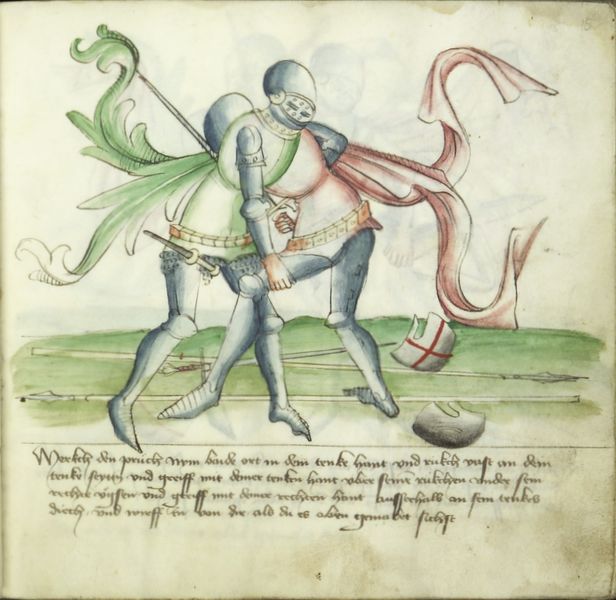 Merckh den pruch Nym baide ort in dein tenke hant vnd rukch vast an dein
tenke seyten vnd greiff mit deiner tenken hant vber seinen rukchen vnder sein
rechte vchsen vnd greiff mit deiner rechten hant ausserhalb an sein tenkes
diech vnd wirff in von dir als du es oben gemalet sichst